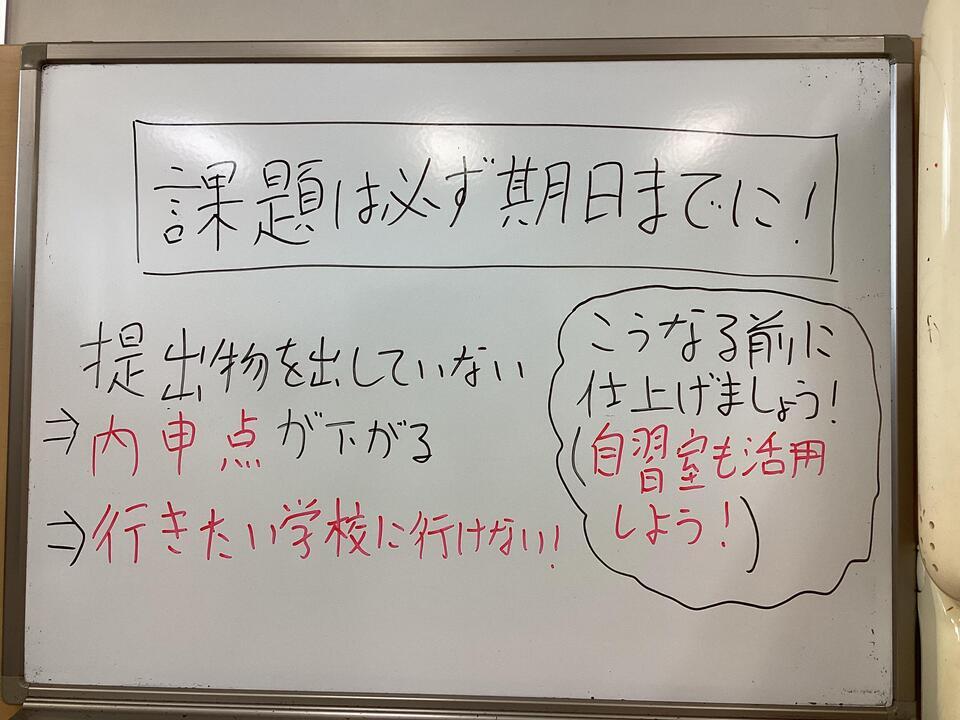 課題は必ず期日までに!
提出物を出していない
⇒内申点が下がる
⇒行きたい学校に行けない!
こうなる前に
仕上げましょう!
(自習室も活用
しよう!)